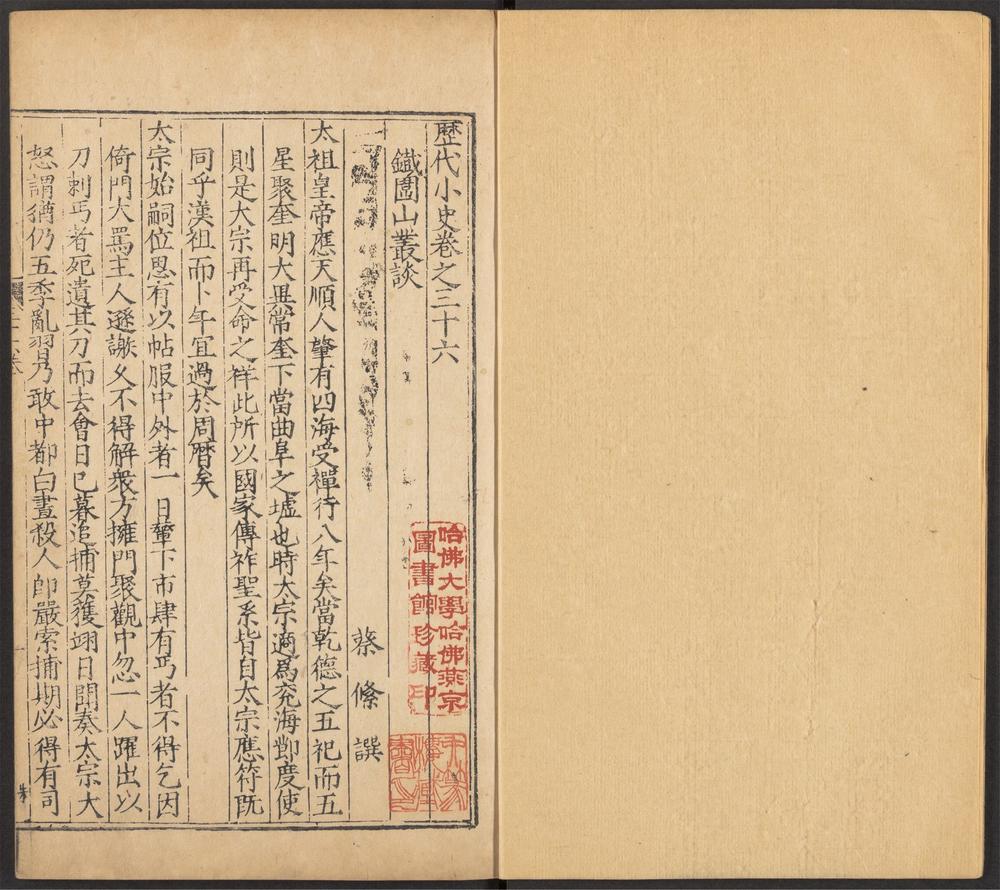 歷代小史卷之三十六
鐵圍山叢談
蔡絛譔
太祖皇帝應天順人肇有四海受禪行八年矣當乾德之五祀而五
星聚奎明大異常奎下當曲阜之墟也時太宗適爲兖海節度使
則是大宗再受命之祥此所以國家傳祚聖系皆自太宗應符既
同乎漢祖而卜年宜過於周曆矣
太宗始嗣位思有以帖服中外者一日輦下市肆有丐者不得乞因
倚門大罵主人遜謝久不得解衆方擁門聚觀中忽一人躍出以
刀刺丐者死遺其刀而去會日已暮追捕莫獲翊日聞奏太宗大
怒謂猶仍五季亂習乃敢中都白晝殺人卽嚴索捕期必得有司
哈佛大學哈佛燕京
圖書館珍藏印